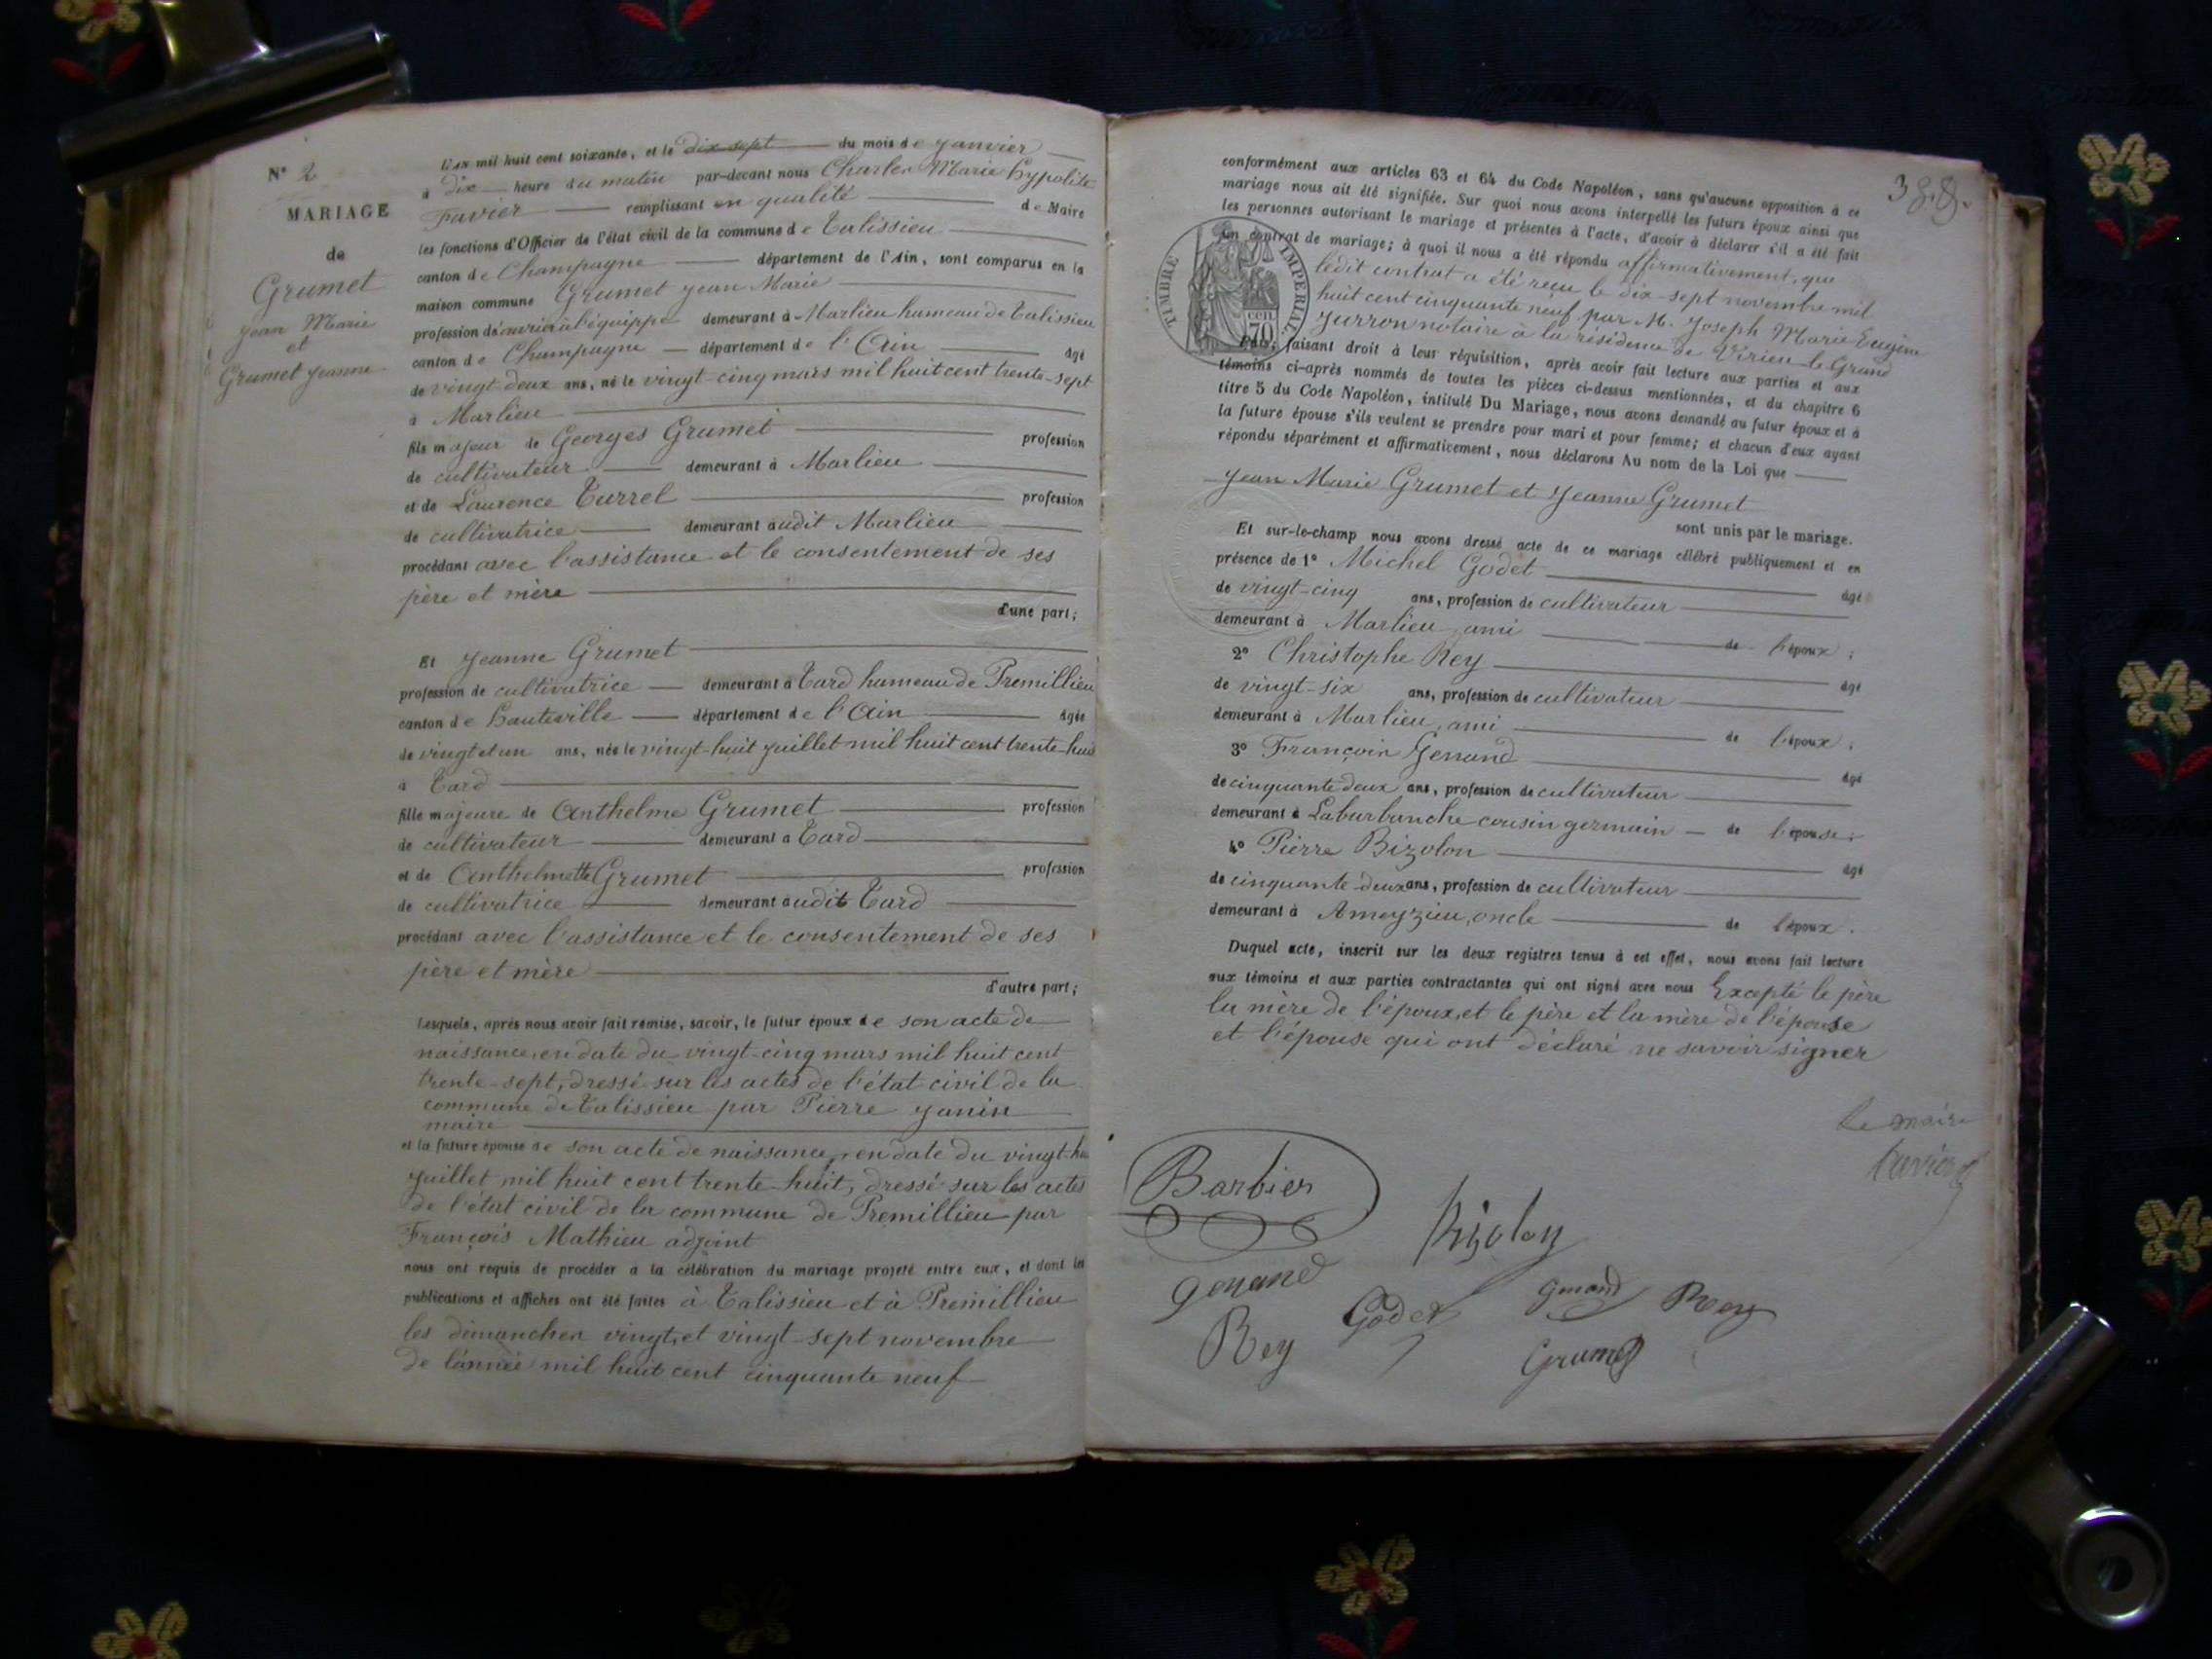 N° 2
MARIAGE
de
Grumet
Jean Marie
et
Grumet Jeanne
L'an mil huit cent soixante, et le dix-sept du mois de janvier
à dix heure du matin par-devant nous Charles Marie Hypolite
Favier remplissant en qualité de Maire
les fonctions d'Officier de l'état civil de la commune de Talissieu
canton de Champagne département de l'Ain, sont comparus en la
maison commune Grumet Jean Marie
profession d'ouvrier à l'équippe demeurant à Marlieu hameau de Talissieu
canton de Champagne département de l'Ain âgé
de vingt deux ans, né le vingt-cinq mars mil huit cent trente-sept
à Marlieu
fils majeur de Georges Grumet profession
de cultivateur demeurant à Marlieu
et de Laurence Turrel profession
de cultivatrice demeurant audit Marlieu
procédant avec l'assistance et le consentement de ses
père et mère
d'une part;
Et Jeanne Grumet
profession de cultivatrice demeurant à Tard hameau de Premillieu
canton de Hauteville département de l'Ain âgée
de vingt et un ans, née le vingt-huit juillet mil huit cent trente-huit
à Tard
fille majeure de Anthelme Grumet profession
de cultivateur demeurant à Tard
et de Anthelmette Grumet profession
de cultivatrice demeurant audit Tard
procédant avec l'assistance et le consentement de ses
père et mère
d'autre part;
Lesquels, après nous avoir fait remise, savoir, le futur époux de son acte de
naissance, en date du vingt-cinq mars mil huit cent
trente-sept, dressé sur les actes de l'état civil de la
commune de Talissieu par Pierre Janin
maire
et la future épouse de son acte de naissance, en date du vingt-hui
juillet mil huit cent trente-huit, dressé sur les actes
de l'état civil de la commune de Premillieu par
François Mathieu adjoint
nous ont requis de procéder à la célébration du mariage projeté entre eux, et dont les
publications et affiches ont été faites à Talissieu et à Premillieu
les dimanches vingt, et vingt-sept novembre
de l'année mil huit cent cinquante neuf
conformément aux articles 63 et 64 du Code Napoléon, sans qu'aucune opposition à ce
mariage nous ait été signifiée. Sur quoi nous avons interpellé les futurs époux ainsi que
les personnes autorisant le mariage et présentes à l'acte, d'avoir à déclarer s'il a été fait
un contrat de mariage; à quoi il nous a été répondu affirmativement, que
ledit contrat a été reçu le dix-sept novembre mil
huit cent cinquante neuf par M. Joseph Marie Eugène
Jurron notaire à la résidence de Virieu-le-Grand
TIMBRE IMPERIAL
70 cen
Puis, faisant droit à leur réquisition, après avoir fait lecture aux parties et aux
témoins ci-après nommés de toutes les pièces ci-dessus mentionnées, et du chapitre 6
titre 5 du Code Napoléon, intitulé Du Mariage, nous avons demandé au futur époux et à
la future épouse s'ils veulent se prendre pour mari et pour femme; et chacun d'eux ayant
répondu séparément et affirmativement, nous déclarons Au nom de la Loi que
Jean Marie Grumet et Jeanne Grumet
sont unis par le mariage.
Et sur-le-champ nous avons dressé acte de ce mariage célébré publiquement et en
présence de 1° Michel Godet âgé
de vingt-cinq ans, profession de cultivateur
demeurant à Marlieu, ami de l'époux;
2° Christophe Rey âgé
de vingt-six ans, profession de cultivateur
demeurant à Marlieu, ami de l'époux;
3° François Genand âgé
de cinquante deux ans, profession de cultivateur
demeurant à Laburbanche cousin germain de l'épouse;
4° Pierre Bizolon âgé
de cinquante-deux ans, profession de cultivateur
demeurant à Ameyzieu, oncle de l'époux.
Duquel acte, inscrit sur les deux registres tenus à cet effet, nous avons fait lecture
aux témoins et aux parties contractantes qui ont signé avec nous Excepté le père
la mère de l'époux, et le père et la mère de l'épouse
et l'épouse qui ont déclaré ne savoir signer
Le maire
Favier
Barbier
Bizolon
Genand
Godet
Genand
Rey
Rey
Grumet